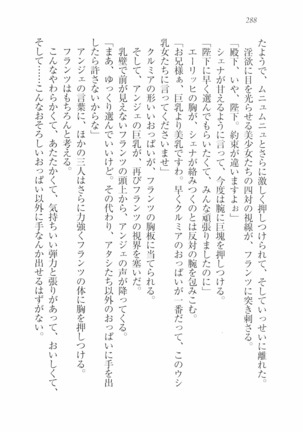 288
たようで、ムニュムニュとさらに激しく押しつけられて、そしていっせいに離れた。
淫欲に目を光らせる美少女たちの四対の視線が、フランツに突き刺さる。
「殿下、いや、陛下。約束が違いますよぉ」
シェナが甘えるように言って、今度は腕に巨塊を押しつける。
「陛下に早く選んでもらいたくて、みんな頑張りましたのに」
エーリッヒの胸が、シェナが絡みつくのとは反対の腕を包みこむ。
「お兄様ぁ、巨乳より美乳ですわ。早くクルミアのおっぱいが一番だって、このウシ
乳女たちに言ってくださいませ」
クルミアの形いいおっぱいが、フランツの胸板に当てられる。
そして、アンジェの巨乳が、再びフランツの視界を塞いだ。
乳壁で前が見えないフランツの頭上から、アンジェの声が降ってくる。
「まあ、ゆっくり選んでいいけど。その代わり、アタシたち以外のおっぱいに手を出
したら許さないからな」
アンジェの言葉に、ほかの三人はさらに力強くフランツの体に胸を押しつける。
フランツはもちろんと考える。
こんなやわらかくて、あたたかくて、気持ちいい弾力と張りがあって、おいしくて、
そして……こんなおそろしいおっぱい以外に手なんか出せるはずがない。